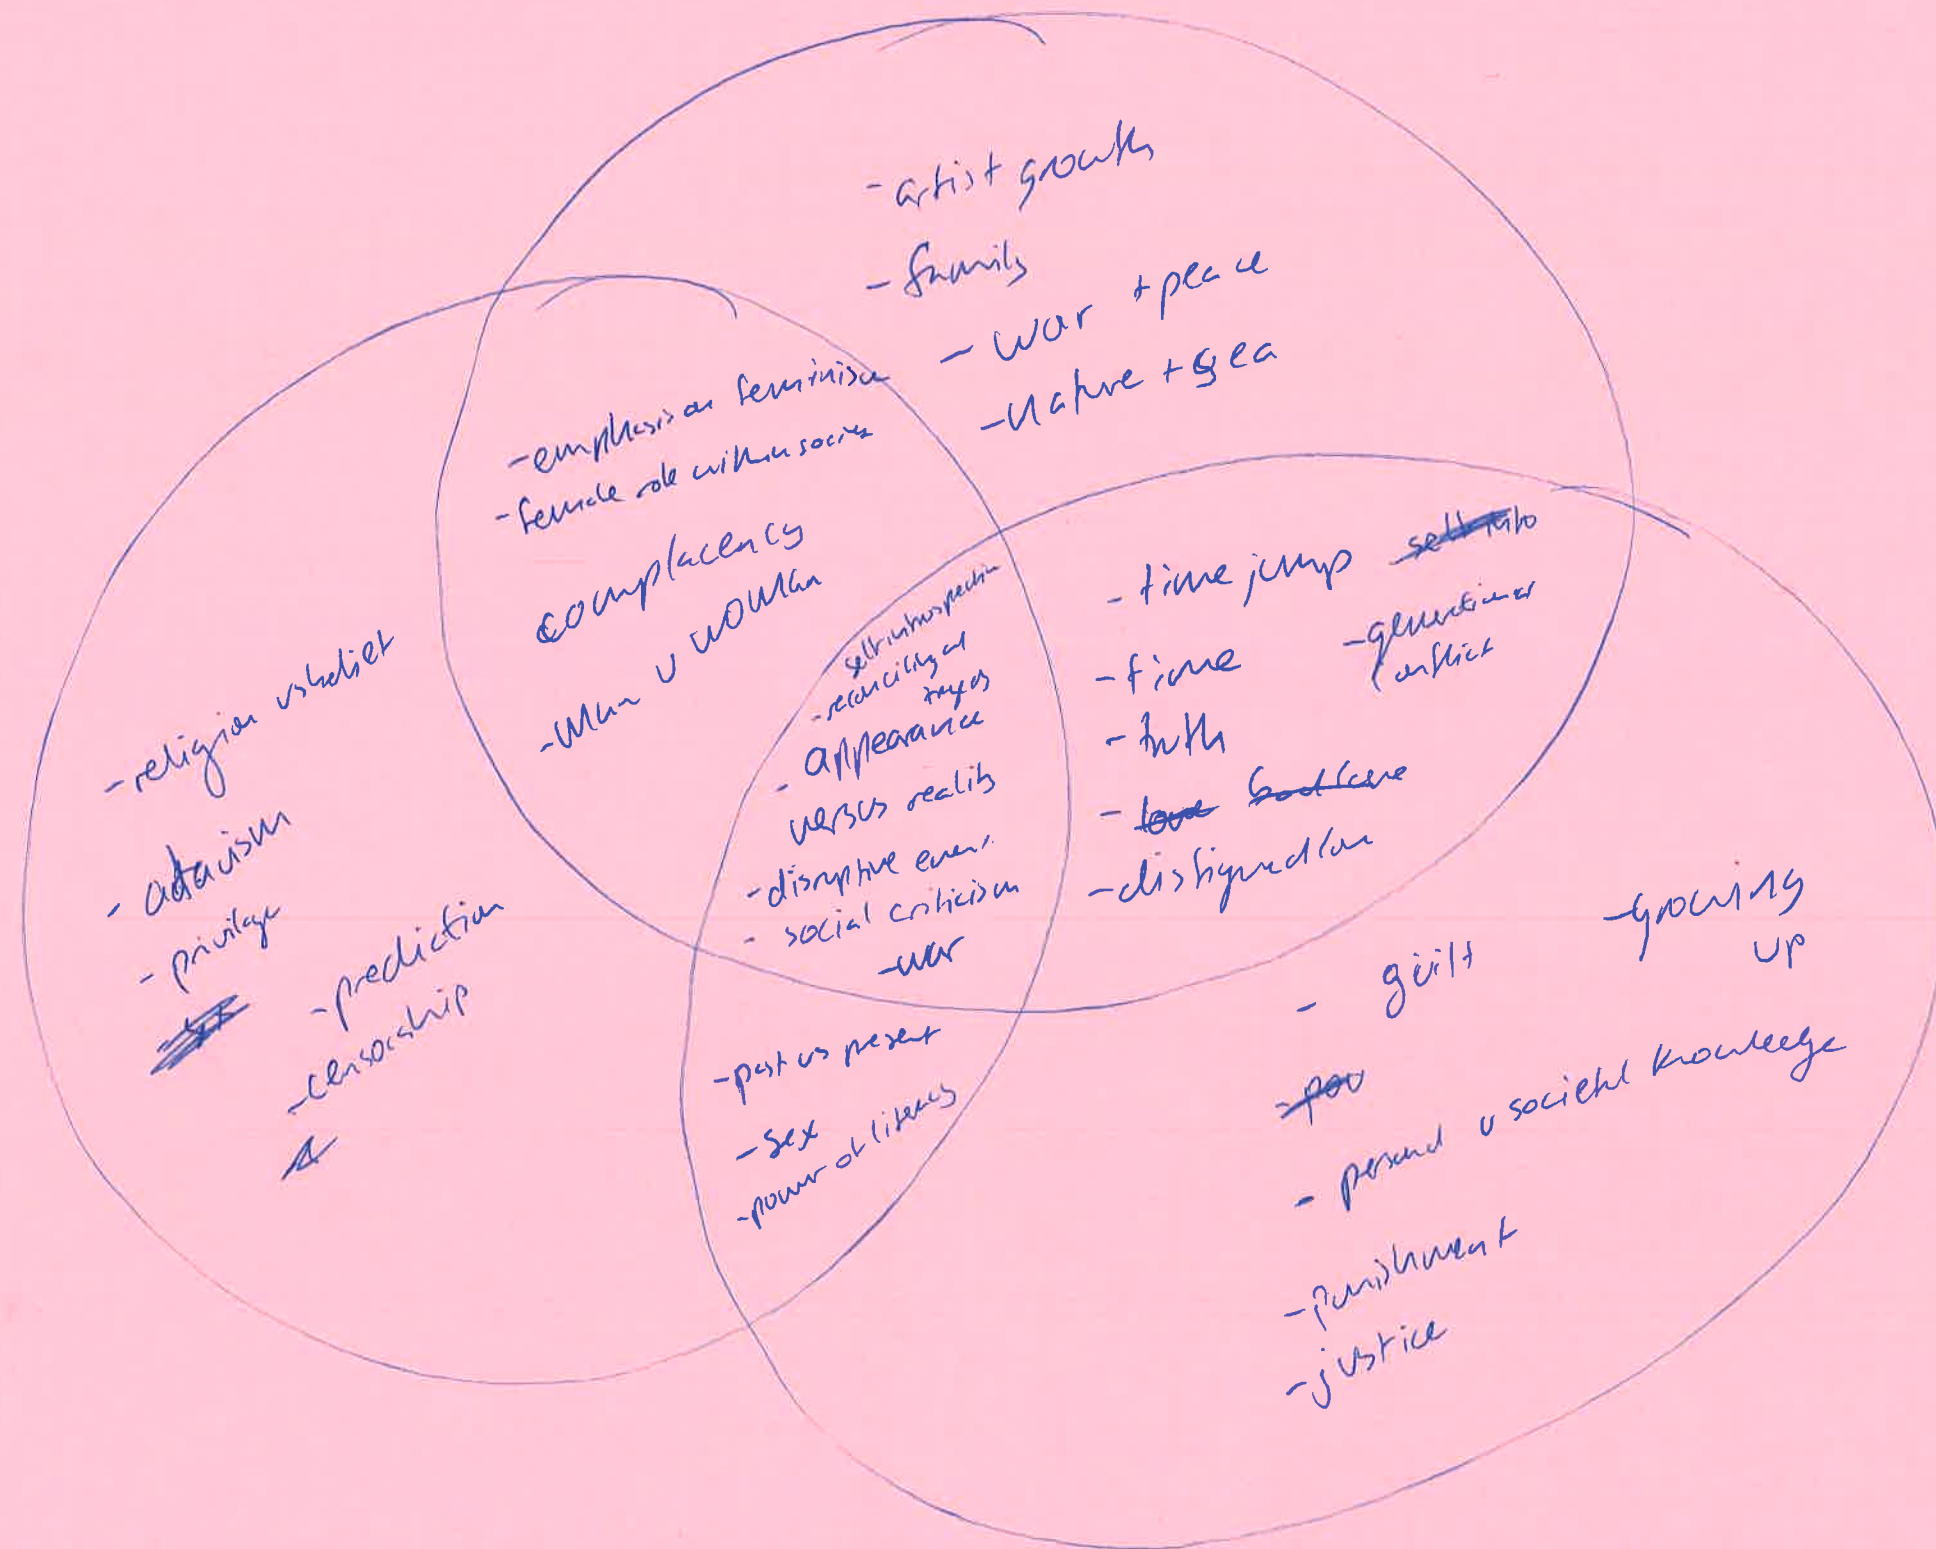 - artist growth
- family
- war + peace
- nature + sea
- emphasis on feminism
- female role within society
complacency
- man v woman
- religion vs belief
- atavism
- privilage
- prediction
- censorship
self introspection
- reconciling of
- appearance
versus reality
- disruptive event
- social criticism
- war
- time jump
- generational
conflict
- time
- truth
- love
- past vs present
- sex
- power of literacy
- guilt
- growing
up
- pov
- personal v societal knowledge
- punishment
- justice